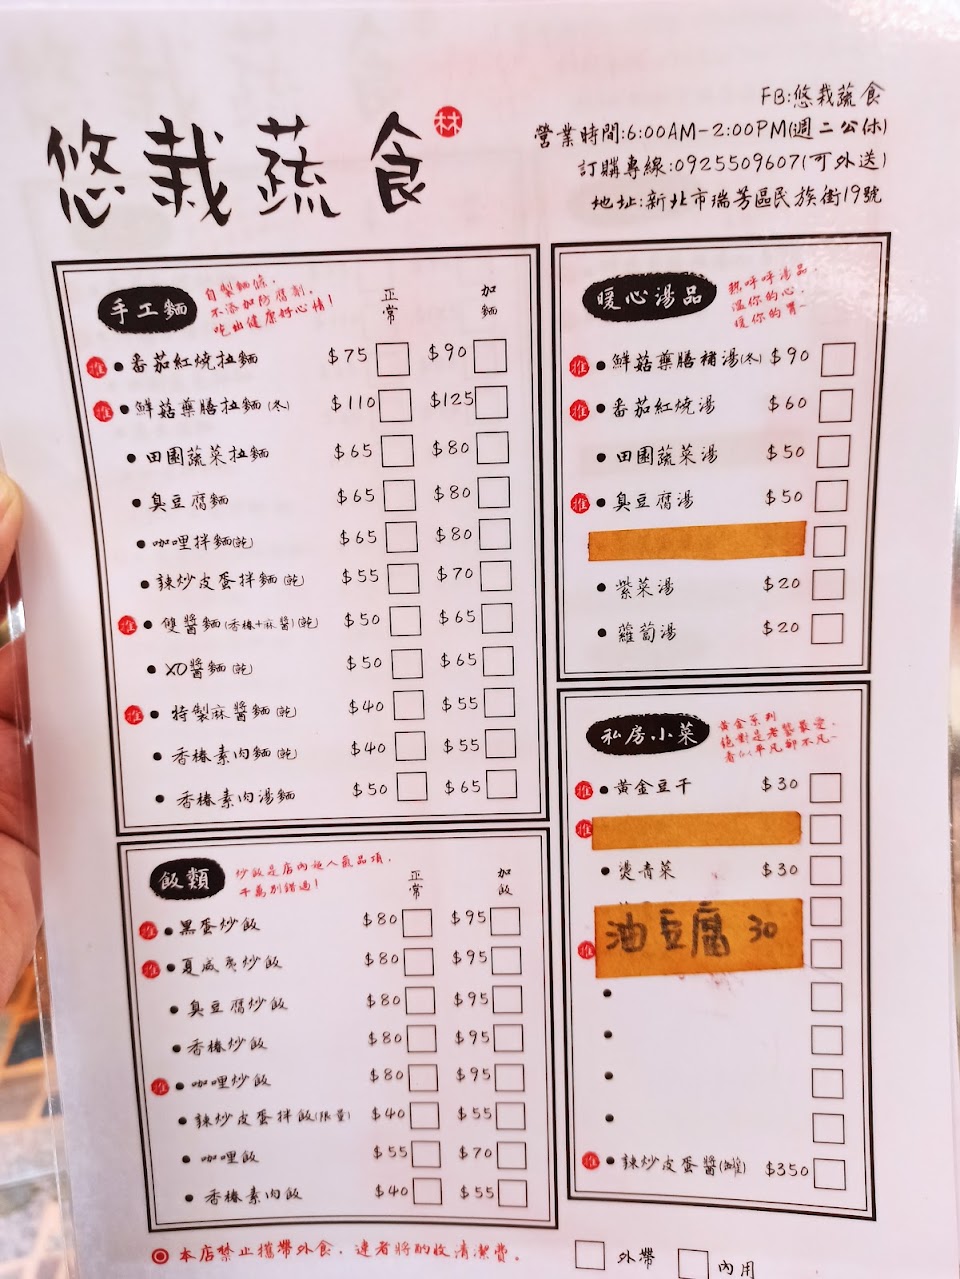 悠栽蔬食
林
FB:悠栽蔬食
營業時間:6:00AM-2:00PM(週二公休)
訂購專線:0925509607(可外送)
地址:新北市瑞芳區民族街19號
手工麵
自製麵條,
不添加防腐劑,
吃出健康好心情!
正常 加麵
推 ●番茄紅燒拉麵 $75 $90
推 ●鮮菇藥膳拉麵(冬) $110 $125
●田園蔬菜拉麵 $65 $80
●臭豆腐麵 $65 $80
●咖哩拌麵(乾) $65 $80
●辣炒皮蛋拌麵(乾) $55 $70
推 ●雙醬麵(香椿+麻醬)(乾) $50 $65
●XO醬麵(乾) $50 $65
推 ●特製麻醬麵(乾) $40 $55
●香椿素肉麵(乾) $40 $55
●香椿素肉湯麵 $50 $65
飯類
炒飯是店內超人氣品項,
千萬別錯過!
正常 加飯
推 ●黑蛋炒飯 $80 $95
推 ●夏威夷炒飯 $80 $95
●臭豆腐炒飯 $80 $95
●香椿炒飯 $80 $95
推 ●咖哩炒飯 $80 $95
●辣炒皮蛋拌飯(限量) $40 $55
●咖哩飯 $55 $70
●香椿素肉飯 $40 $55
暖心湯品
熱呼呼湯品,
溫你的心,
暖你的胃~
推 ●鮮菇藥膳補湯(冬) $90
推 ●番茄紅燒湯 $60
●田園蔬菜湯 $50
推 ●臭豆腐湯 $50
●紫菜湯 $20
●蘿蔔湯 $20
私房小菜
黃金系列
絕對是老饕最愛,
看似平凡卻不凡~
推 ●黃金豆干 $30
推
●燙青菜 $30
推 油豆腐 30
推 ●辣炒皮蛋醬(罐) $350
◎本店禁止攜帶外食,違者將酌收清潔費。
外帶 內用